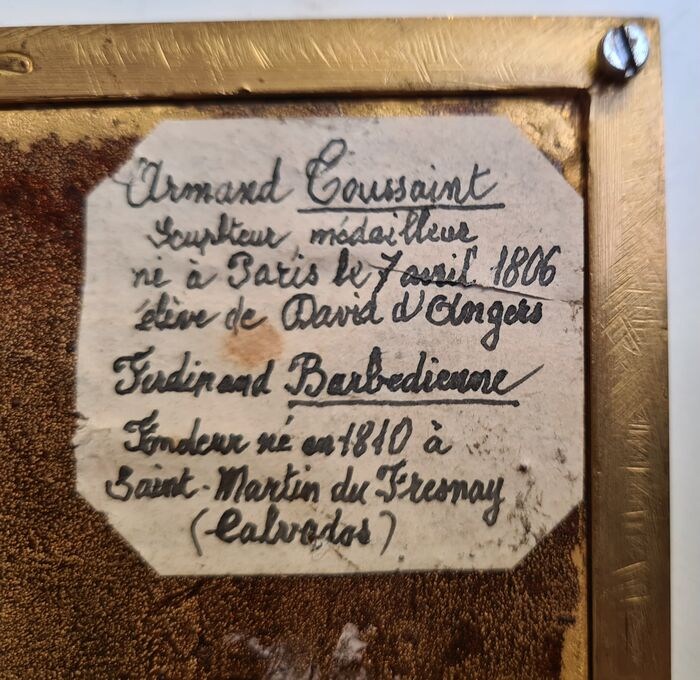 Armand Toussaint
Sculpteur, médailleur
né à Paris le 7 avril 1806
élève de David d'Angers
Ferdinand Barbedienne
Fondeur né en 1810 à
Saint-Martin du Fresnay
(Calvados)